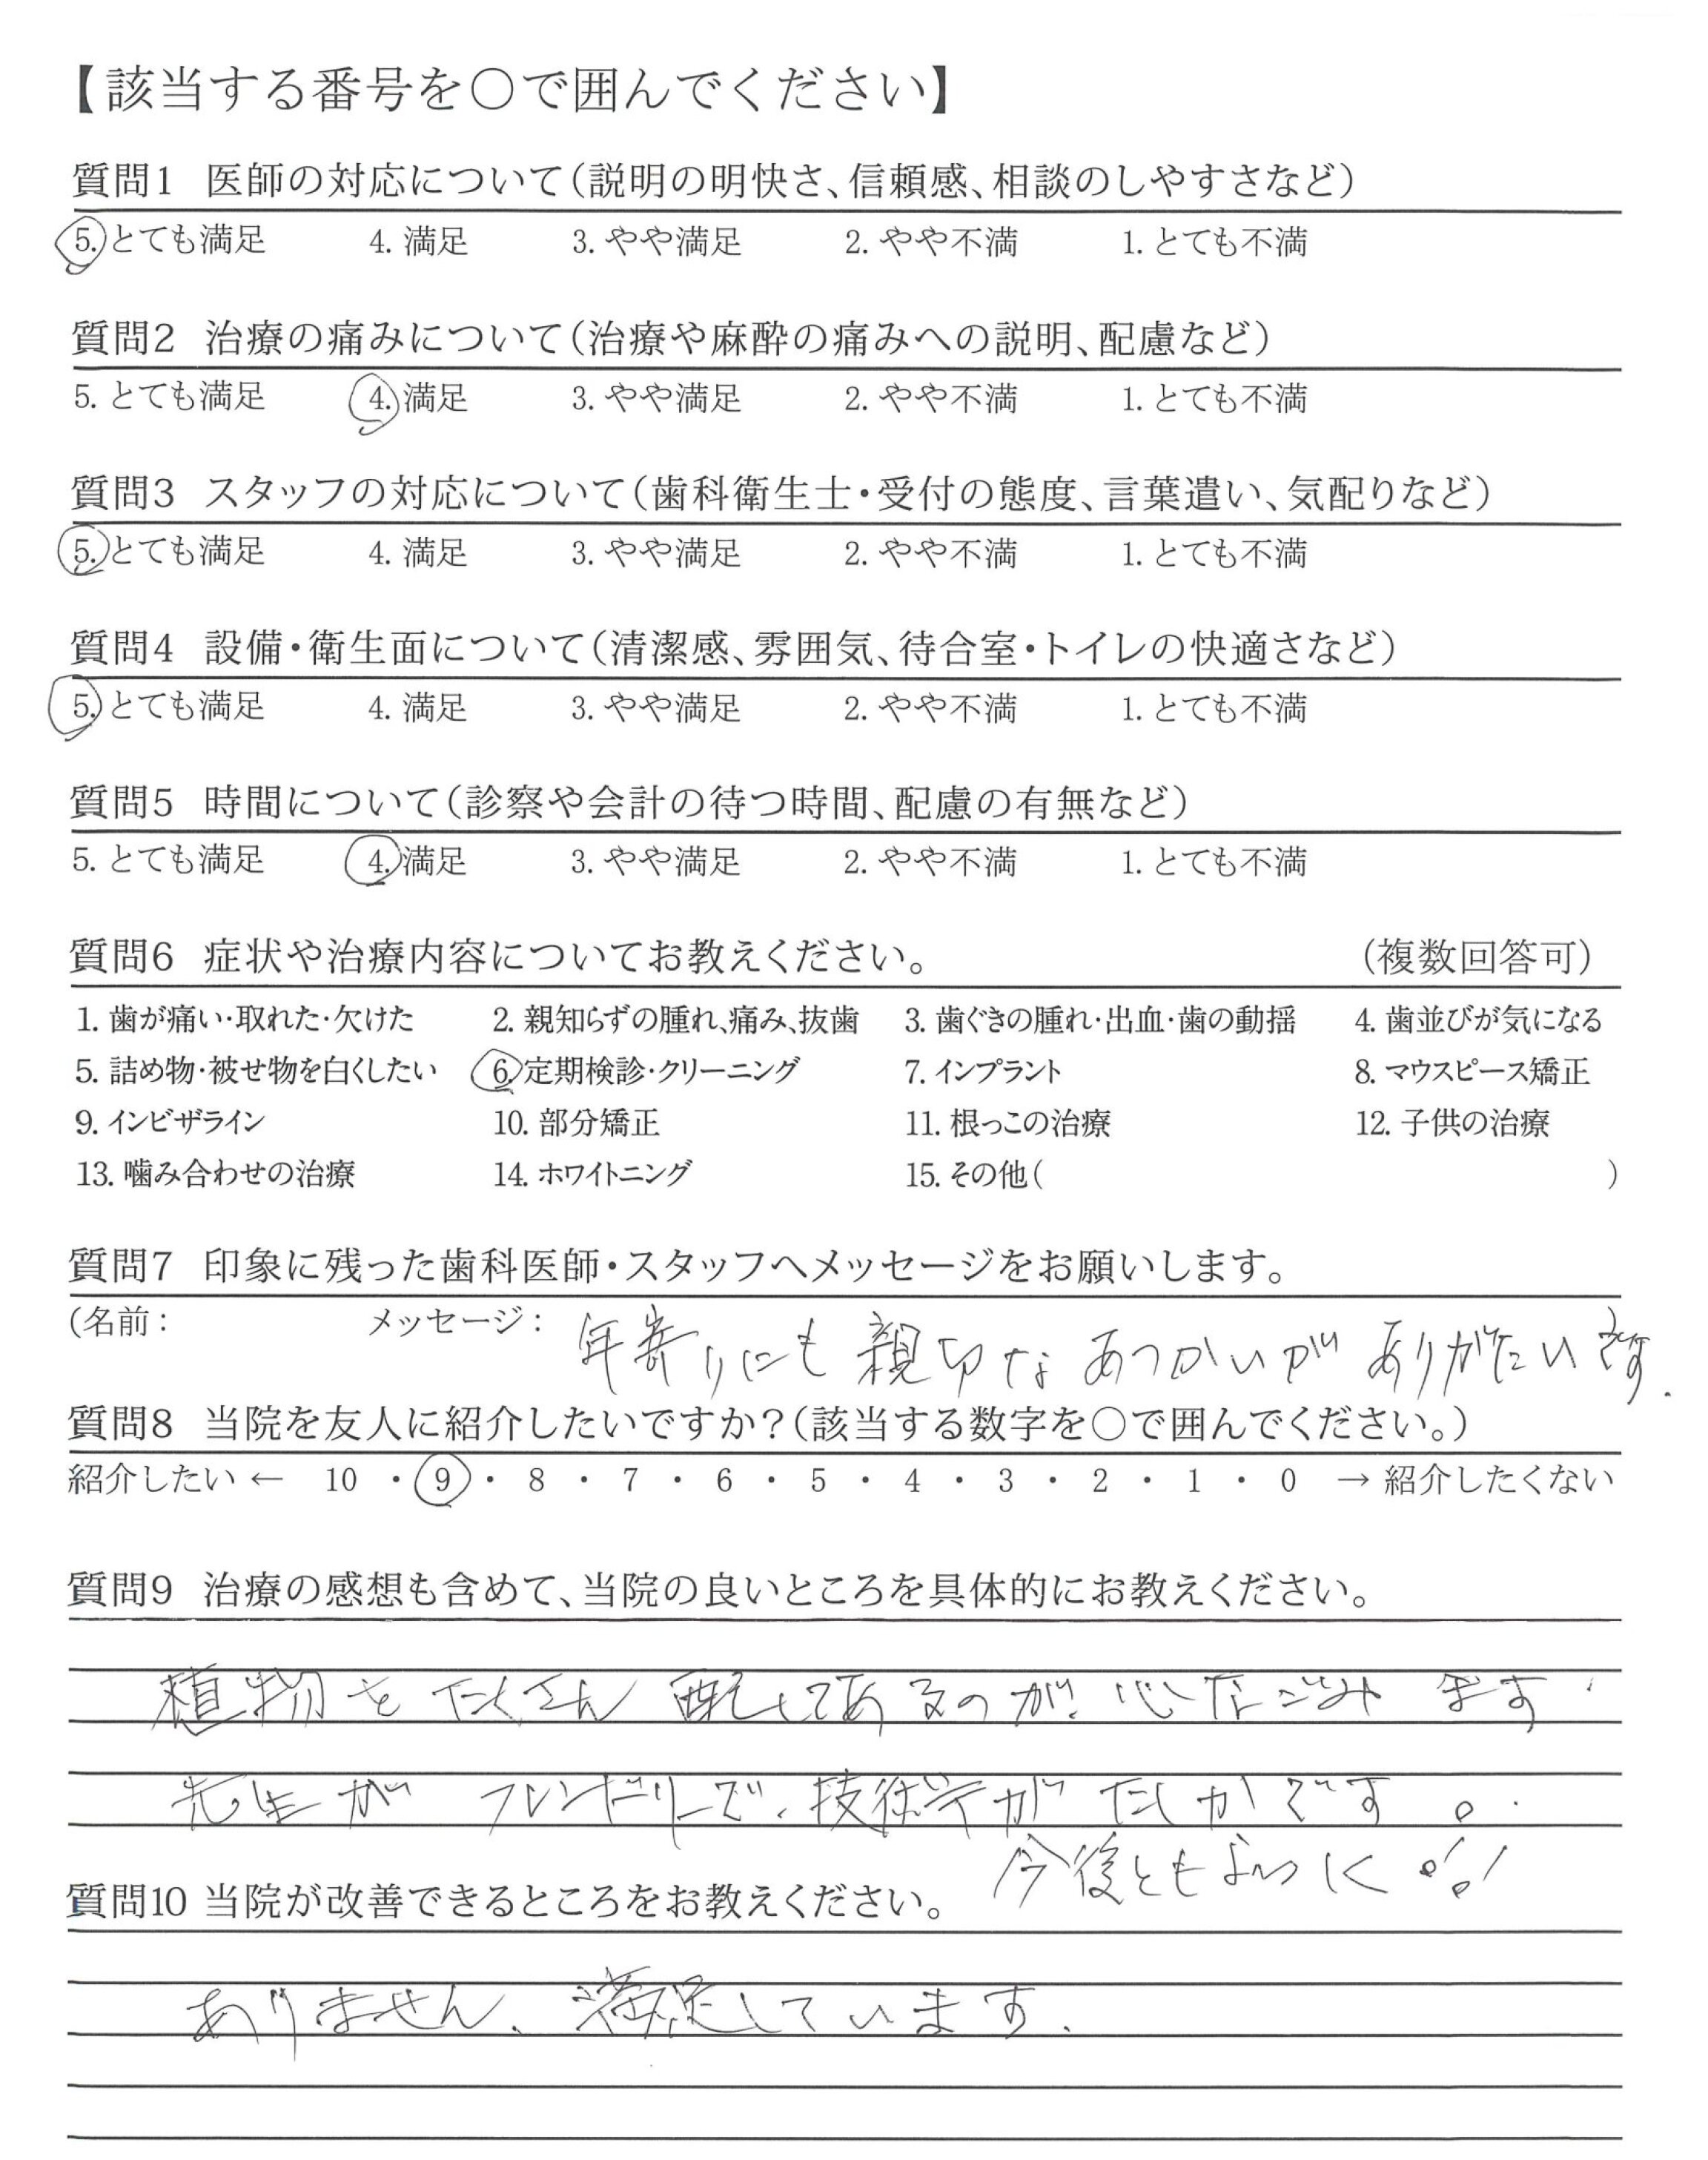 【該当する番号を○で囲んでください】
質問1 医師の対応について(説明の明快さ、信頼感、相談のしやすさなど)
5. とても満足 4. 満足 3. やや満足 2. やや不満 1. とても不満
質問2 治療の痛みについて(治療や麻酔の痛みへの説明、配慮など)
5. とても満足 4. 満足 3. やや満足 2. やや不満 1. とても不満
質問3 スタッフの対応について(歯科衛生士・受付の態度、言葉遣い、気配りなど)
5. とても満足 4. 満足 3. やや満足 2. やや不満 1. とても不満
質問4 設備・衛生面について(清潔感、雰囲気、待合室・トイレの快適さなど)
5. とても満足 4. 満足 3. やや満足 2. やや不満 1. とても不満
質問5 時間について(診察や会計の待つ時間、配慮の有無など)
5. とても満足 4. 満足 3. やや満足 2. やや不満 1. とても不満
質問6 症状や治療内容についてお教えください。 (複数回答可)
1. 歯が痛い・取れた・欠けた 2. 親知らずの腫れ、痛み、抜歯 3. 歯ぐきの腫れ・出血・歯の動揺 4. 歯並びが気になる
5. 詰め物・被せ物を白くしたい 6. 定期検診・クリーニング 7. インプラント 8. マウスピース矯正
9. インビザライン 10. 部分矯正 11. 根っこの治療 12. 子供の治療
13. 噛み合わせの治療 14. ホワイトニング 15. その他( )
質問7 印象に残った歯科医師・スタッフへメッセージをお願いします。
(名前: メッセージ: 年寄りにも親切なあつかいがありがたいです.
質問8 当院を友人に紹介したいですか?(該当する数字を○で囲んでください。)
紹介したい ← 10 ・ 9 ・ 8 ・ 7 ・ 6 ・ 5 ・ 4 ・ 3 ・ 2 ・ 1 ・ 0 → 紹介したくない
質問9 治療の感想も含めて、当院の良いところを具体的にお教えください。
植物をたくさん配してあるのが心なごみます
先生がフレンドリーで、技術がたしかです。
今後ともよろしく
質問10 当院が改善できるところをお教えください。
ありません、満足しています.